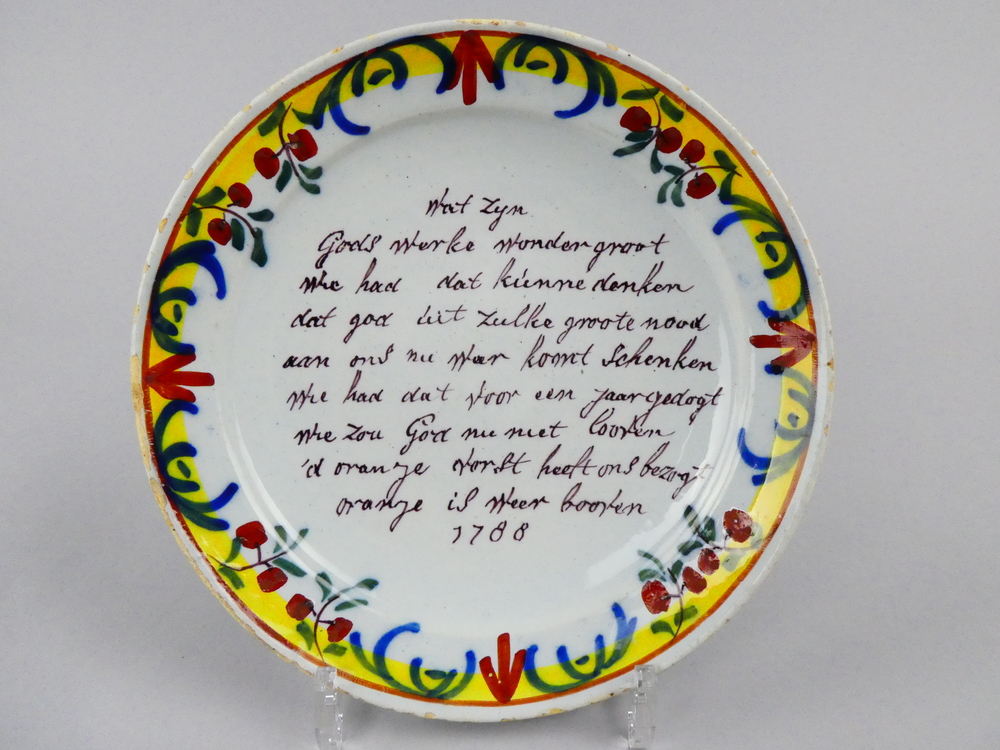 Wat zyn
Gods Werke Wonder groot
Wie had dat kunne denken
dat god uit zulke groote nood
aan ons nu Weer komt schenken
Wie had dat voor een jaar gedogt
Wie zou God nu niet looven
'd oranje vorst heeft ons bezogt
oranje is Weer booven
1788